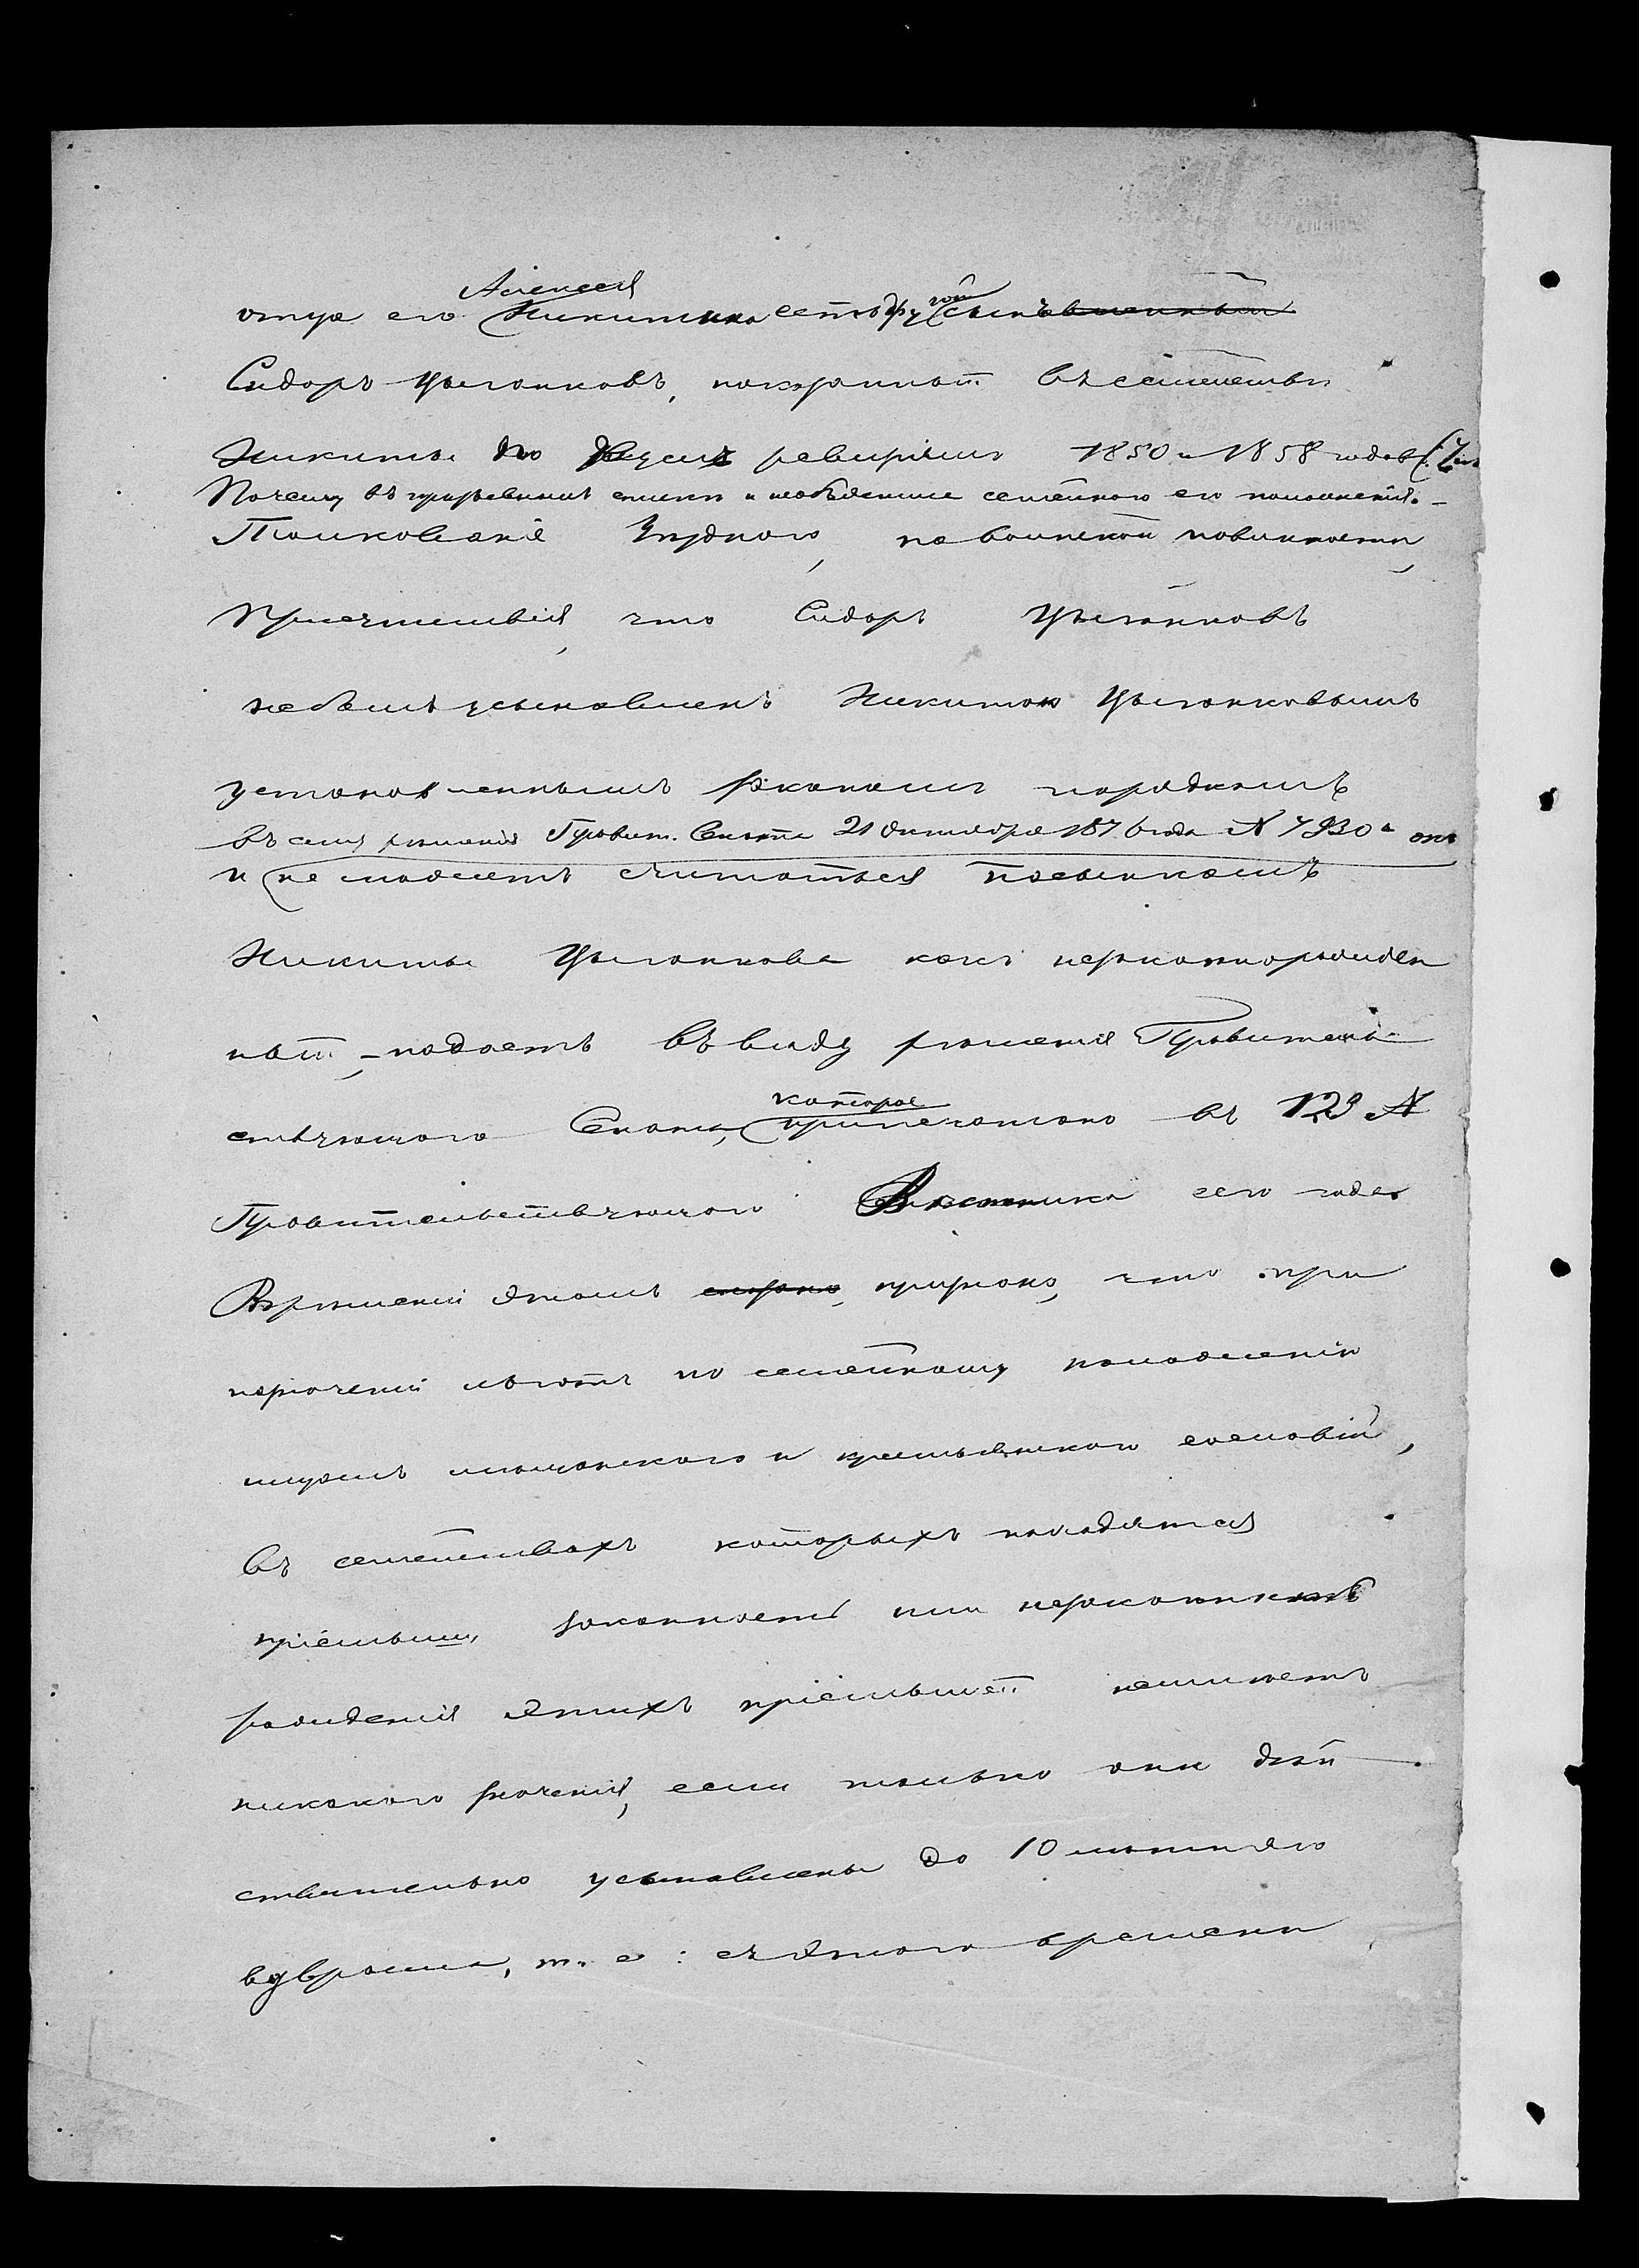 Алексея
отца его Никитина есть другой сынъ
Сидоръ Цыганковъ, показанный въ семействѣ
Никиты по двумъ ревизіямъ 1850 и 1858 годовъ
Почему въ призывныхъ спискахъ и необъяснено семейнаго его положенія. —
Толкованіе Уѣзднаго, по воинской повинности,
Присутствія, что Сидоръ Цыганковъ
небылъ усыновленъ Никитою Цыганковымъ
установленнымъ закономъ порядкомъ
въ силу рѣшенія Правит. Сената 21 октября 1876 года № 7930 и онъ
и не можетъ считаться пасынкомъ
Никиты Цыганкова какъ незаконнорожден
ный, – падаетъ въ виду рѣшенія Правитель
которое
ствующаго Сената, припечатано въ 123 №
Правительствующаго Вѣстника сего года.
Въ рѣшеніи этомъ сказано, что при
назначеніи льготъ по семейному положенію
лицамъ мѣщанскаго и крестьянскаго сословій,
въ семействахъ которыхъ находятся
пріемыши, законность или незаконность
рожденія этихъ пріемышей неимѣетъ
никакого значенія, если только они дѣй
ствительно усыновлены до 10 лѣтняго
возраста, т. е: съ этого времени